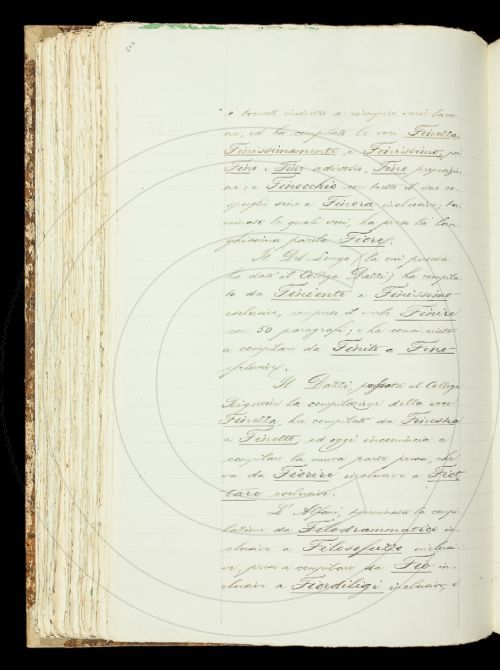 è tornato indietro a riempire varie lacu-
ne, ed ha compilato le voci Finetta,
Finissimamente e Finissimo, poi
Fine e Fine adiettivo, Fine preposizio-
ne: e Finocchio con tutto il suo ce-
spuglio sino a Finora inclusive; ter-
minate le quali voci, ha preso la lun-
ghissima parola Fiore.
Il Del Lungo (la cui presa
ha dato il Collega Dazzi) ha compila-
to da Finiente a Finissimo
esclusive, compreso il verbo Finire
con 50 paragrafi; e ha cominciato
a compilare da Finito a Fino
esclusive.
Il Dazzi, passata al Collega
la compilazione della voce
Finestra, ha compilato da Finestra
a Finetto, ed oggi incomincia a
compilare la nuova parte presa, che
va da Fiorire inclusive a Fiot-
tare esclusive.
L'Alfani, terminata la compi-
lazione da Filodrammatico in-
clusive a Filosofuzzo inclusi-
ve, prese a compilare da Fio in-
clusive a Fiordiligi inclusive; e